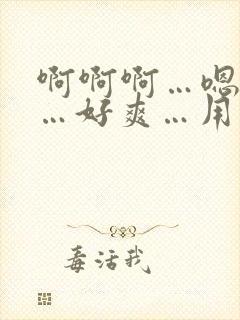 啊啊啊…嗯
…好爽…用
毒活我